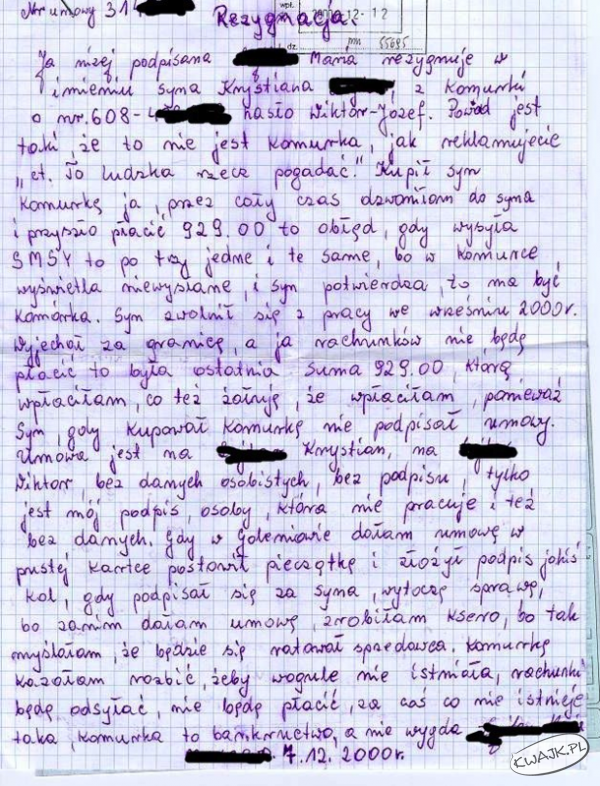 Nr umowy 31
wpł.
12-12
Rezygnacja.
dz. nn 55695
Ja niżej podpisana Maria rezygnuje w
imieniu syna Krystiana , z komurki
o nr. 608-4 hasło Wiktor-Józef. Powód jest
taki, że to nie jest komurka, jak reklamujecie
„et. To ludzka rzecz pogadać." Kupił syn
komurkę ja, przez cały czas dzwoniłam do syna
i przyszło płacić 929.00 to obłęd, gdy wysyła
SMSY to po trzy jedne i te same, bo w komurce,
wyświetla niewysłane, i syn potwierdza, to ma być
komórka. Syn zwolnił się z pracy we wrześniu 2000r.
wyjechał za granicę, a ja rachunków nie będę
płacić to była ostatnia suma 929.00, którą
wpłaciłam, co też żałuję, że wpłaciłam, ponieważ
Syn, gdy kupował komurkę nie podpisał umowy.
Umowa jest na Krystian, na
Wiktor, bez danych osobistych, bez podpisu, tylko
jest mój podpis, osoby, która nie pracuje i też
bez danych. Gdy w Goleniowie dałam umowę w
pustej kartce postawił pieczątkę i złożył podpis jakiś
kol, gdy podpisał się za syna, wytoczę sprawę,
bo zanim dałam umowę, zrobiłam ksero, bo tak
myślałam, że będzie się ratował sprzedawca. Komurkę
kazałam rozbić, żeby wogule nie istniała, rachunki
będę odsyłać, nie będę płacić, za coś co nie istnieje
taka, komurka to bankructwo, a nie wygda
7.12.2000r.
KWAJK.PL